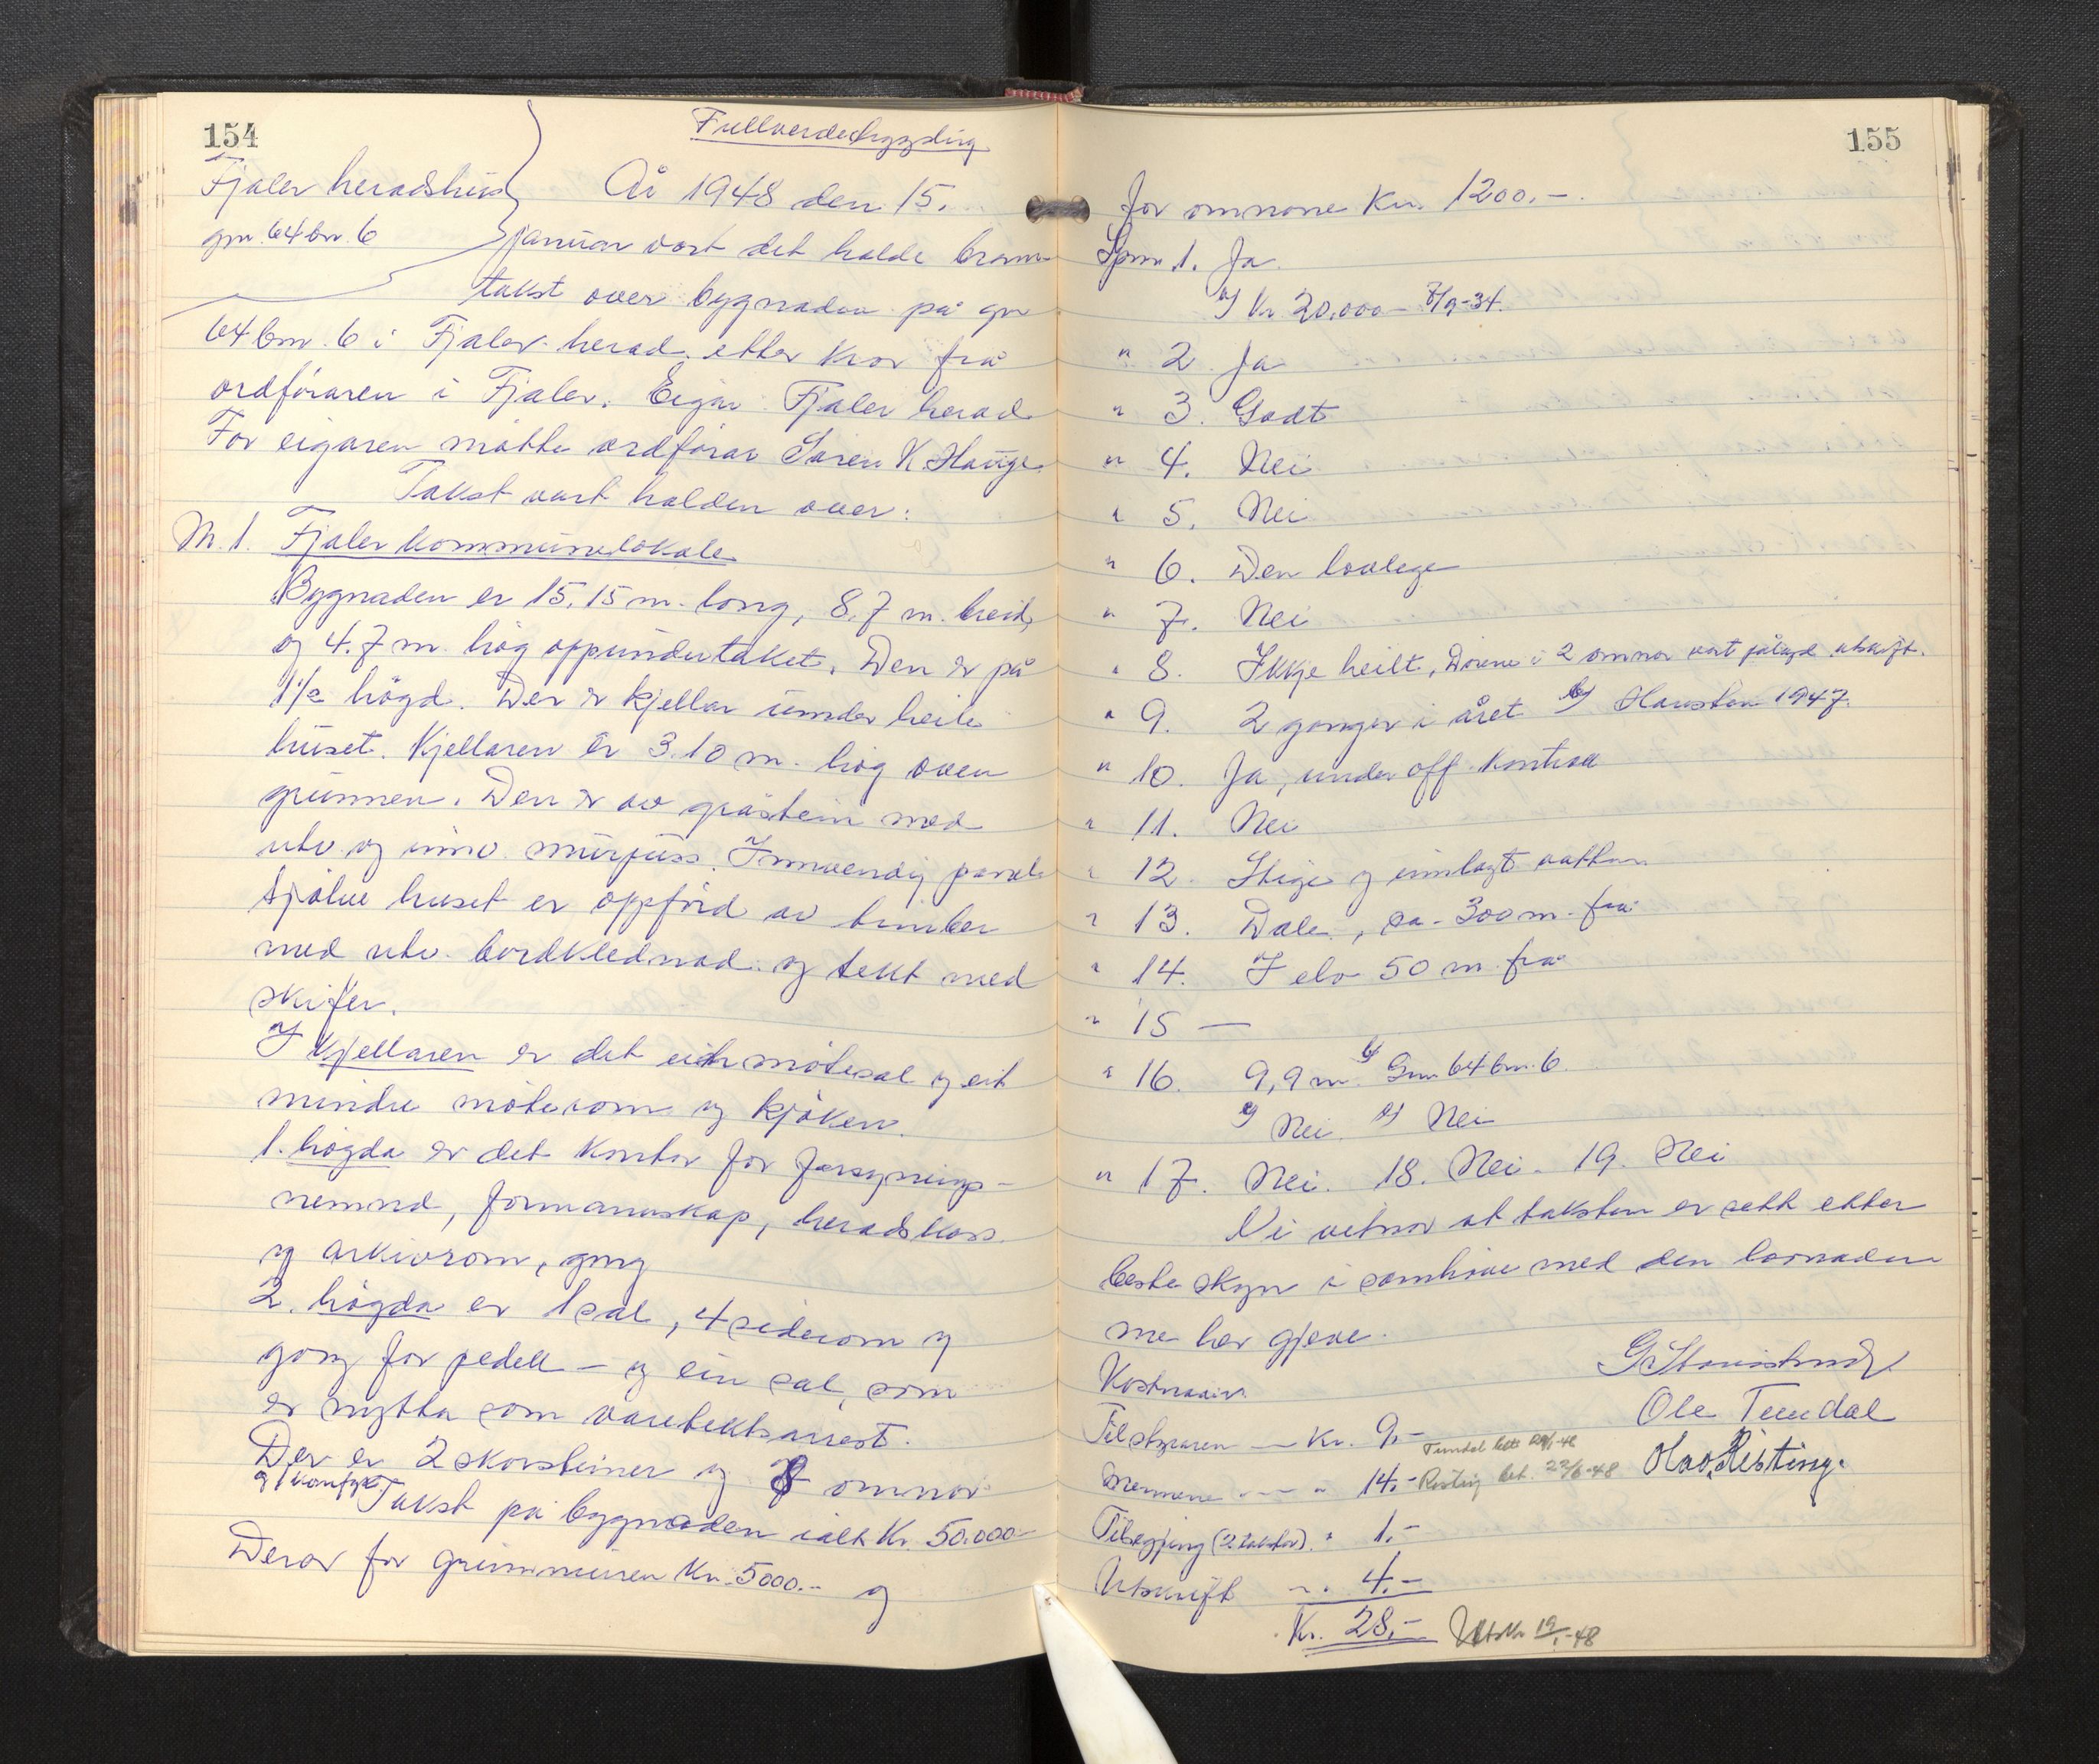 154
Fullverdetrygding
Fjaler heradshus
gnr. 64 bnr. 6
År 1948 den 15.
januar vart det halde brann-
takst over bygnaden på gnr
64 bnr. 6 i Fjaler herad, etter krav frå
ordføraren i Fjaler. Eigar Fjaler herad
For eigaren møtte ordførar Søren K. Hauge.
Takst vart halden over:
M. 1. Fjaler kommunelokale
Bygnaden er 15,15 m. lang, 8.7 m. breid,
og 4.7 m. høg oppundertaket. Den er på
1 1/2 høgd. Der er kjellar under heile
huset. Kjellaren er 3.10 m. høg over
grunnen. Den er av gråstein med
utv. og innv. murpuss. Innvendig panel
Sjølve huset er oppførd av timber
med utv. bordklednad og tekt med
skifer.
I kjellaren er det ein møtesal og eit
mindre møterom og kjøken.
1. høgda er det kontor for forsynings-
nemnd, formannskap, heradskass.
og arkivrom, gang
2. høgda er 1 sal, 4 siderom og
gang for pedell – og ein sal, som
er nytta som varetektsarrest.
Der er 2 skorsteiner og 8 omnar
og 1 komfyr.
Takst på bygnaden ialt Kr. 50.000-
Derav for grunnmuren Kr. 5000.- og
155
for omnane Kr. 1200.-
Spm 1. Ja
a) Kr 20.000 - 8/9-34.
" 2 Ja
" 3. Godt
" 4. Nei
" 5. Nei
" 6. Den lovlege
" 7. Nei
" 8. Ikkje heilt, Dørene i 2 omnar vart pålagd utskift.
" 9. 2 gonger i året b) Hausten 1947.
" 10. Ja, under off. kontroll
" 11. Nei
" 12. Stige og innlagt vatten
" 13. Dale, ca. 300 m. frå
" 14. I elv 50 m frå
" 15 —
" 16. 9,9 m. b) Gnr 64 bnr. 6.
c) Nei. d) Nei
" 17. Nei. 18. Nei. 19. Nei
Vi vitnar at taksten er sett etter
beste skyn i samhøve med den lovnaden
me har gjeve.
Kostnader
Ole Tundal
Tilstyraren — Kr. 9.-
Tundal bet.
Mennene — " 14.- Risting bet. 22/6-48
Olav Risting.
Tilsegjing (2 takstar). " 1.-
Utskrift " 4.-
Kr. 28.- Utskr. 19/1-48